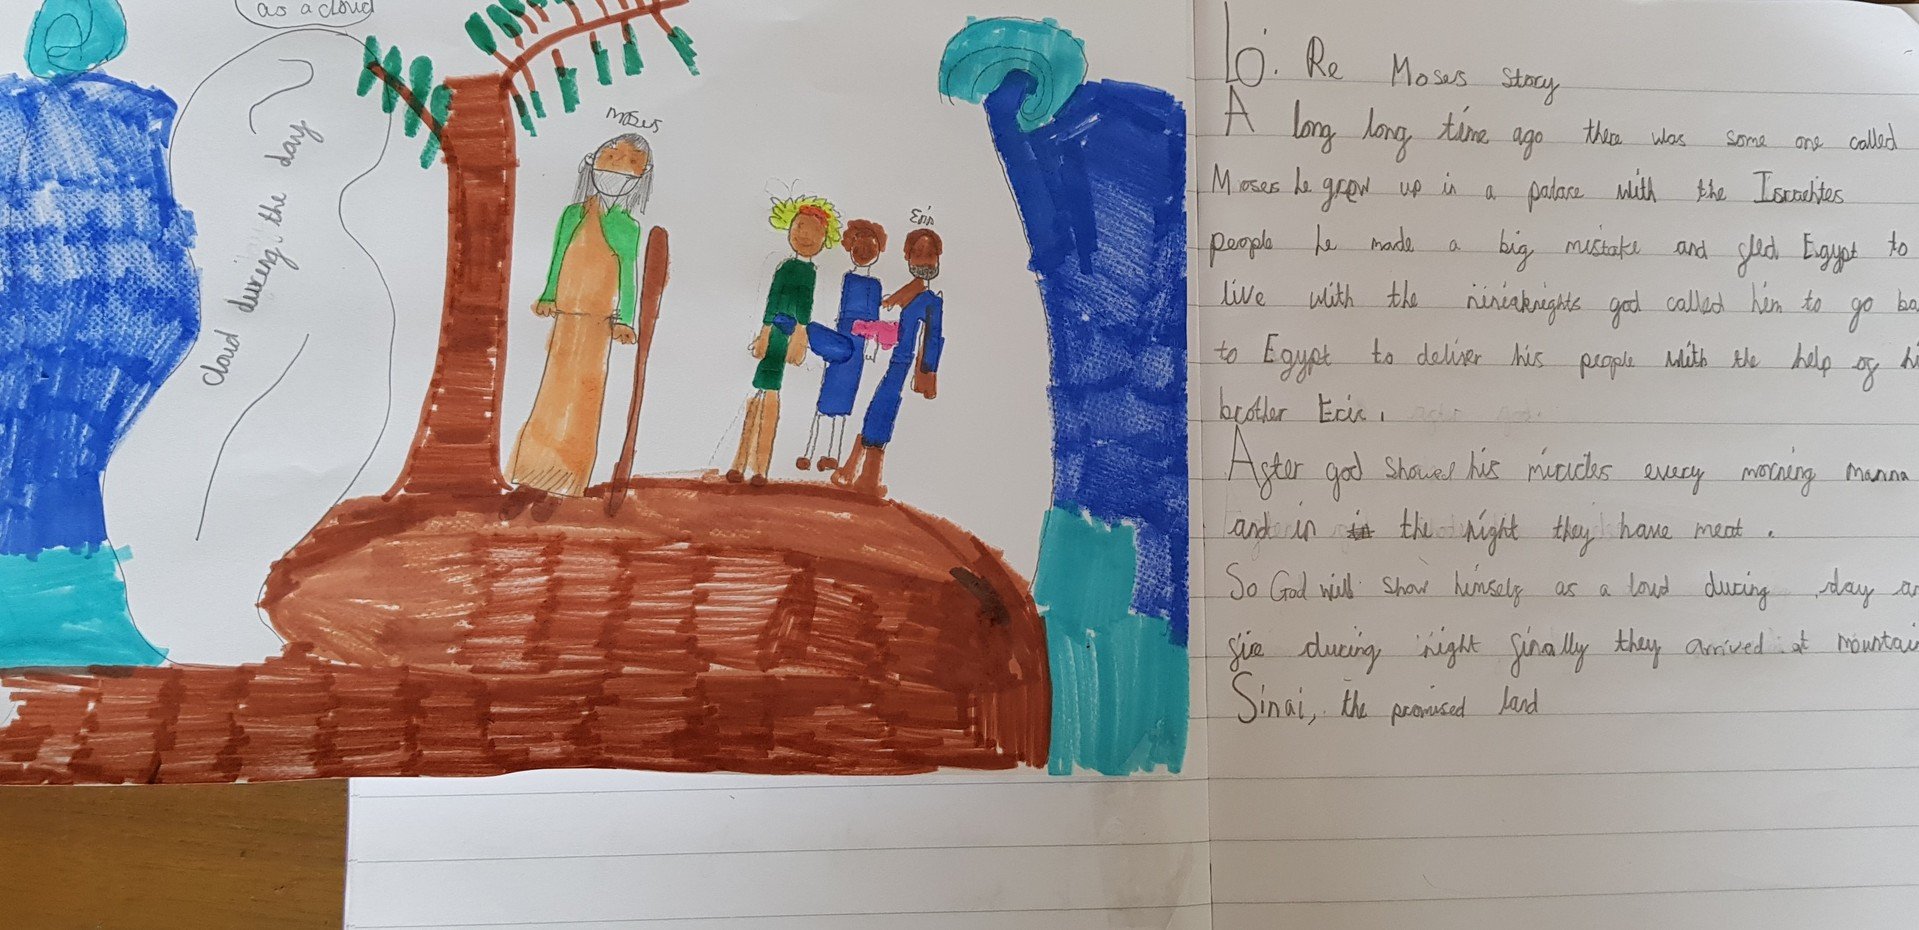 as a cloud
cloud during the day
Moses
Eric
LO: Re Moses story
A long long time ago there was some one called
Moses he grow up in a palace with the Israelites
people he made a big mistake and fled Egypt to
live with the god called him to go ba
to Egypt to deliver his people with the help of hi
brother Eric.
After god showed his miricles every morning manna
and in the night they have meat.
So God will show himself as a loud during day an
fire during night finally they arrived at mountain
Sinai, the promised land